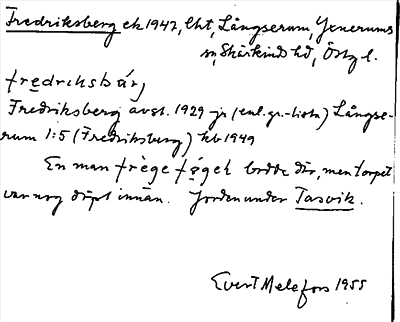 Fredriksberg ek 1947, lht, Långserum, Yxnerums
sn, Skärkinds hd, Östg l.
fredrɩksbárj
Fredriksberg avst. 1929 jr (enl. gr.-lista) Långse-
rum 1:5 (Fredriksberg) kb 1949
En man frège fǫgeh bodde där, men torpet
var nog döpt innan. Jorden under Tasvik.
Evert Melefors 1955